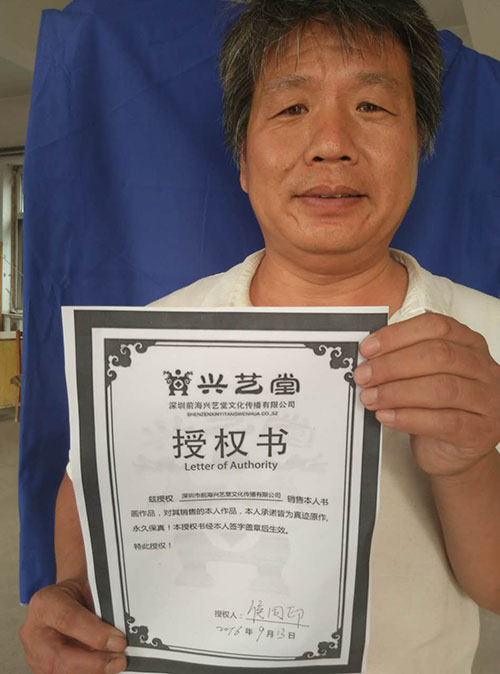 兴艺堂
深圳前海兴艺堂文化传播有限公司
SHENZENXINYITANGWENHUA.CO.,SZ
授权书
Letter of Authority
兹授权 深圳市前海兴艺堂文化传播有限公司 销售本人书
画作品，对其销售的本人作品，本人承诺皆为真迹原作，
永久保真！本授权书经本人签字盖章后生效。
特此授权！
授权人：侯国印
2016年9月13日